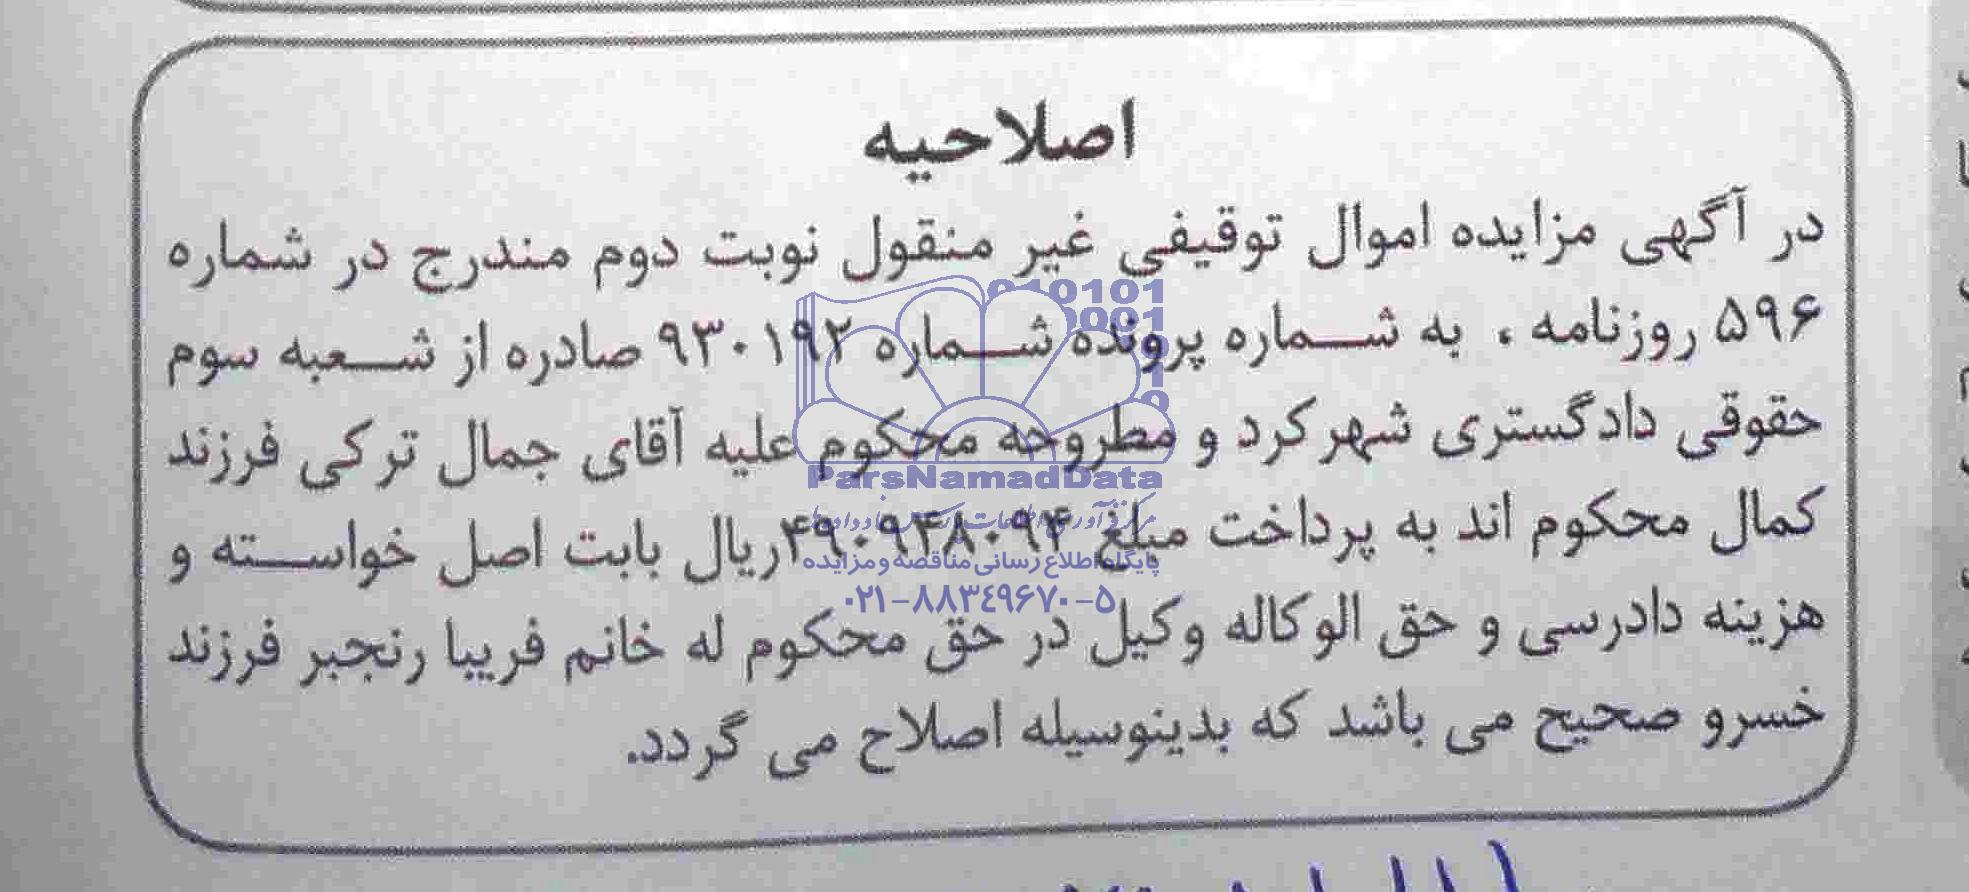 اصلاحیه
در آگهی مزایده اموال توقیفی غیر منقول نوبت دوم مندرج در شماره
۵۹۶ روزنامه ، به شماره پرونده شماره ۹۳۰۱۹۲ صادره از شعبه سوم
حقوقی دادگستری شهرکرد و مطروحه محکوم علیه آقای جمال ترکی فرزند
کمال محکوم اند به پرداخت مبلغ ۴۹۰۹۴۸۰۹۴ریال بابت اصل خواسته و
هزینه دادرسی و حق الوکاله وکیل در حق محکوم له خانم فریبا رنجبر فرزند
خسرو صحیح می باشد که بدینوسیله اصلاح می گردد.
ParsNamadData
پایگاه اطلاع رسانی مناقصه و مزایده
۰۲۱-۸۸۳۴۹۶۷۰-۵